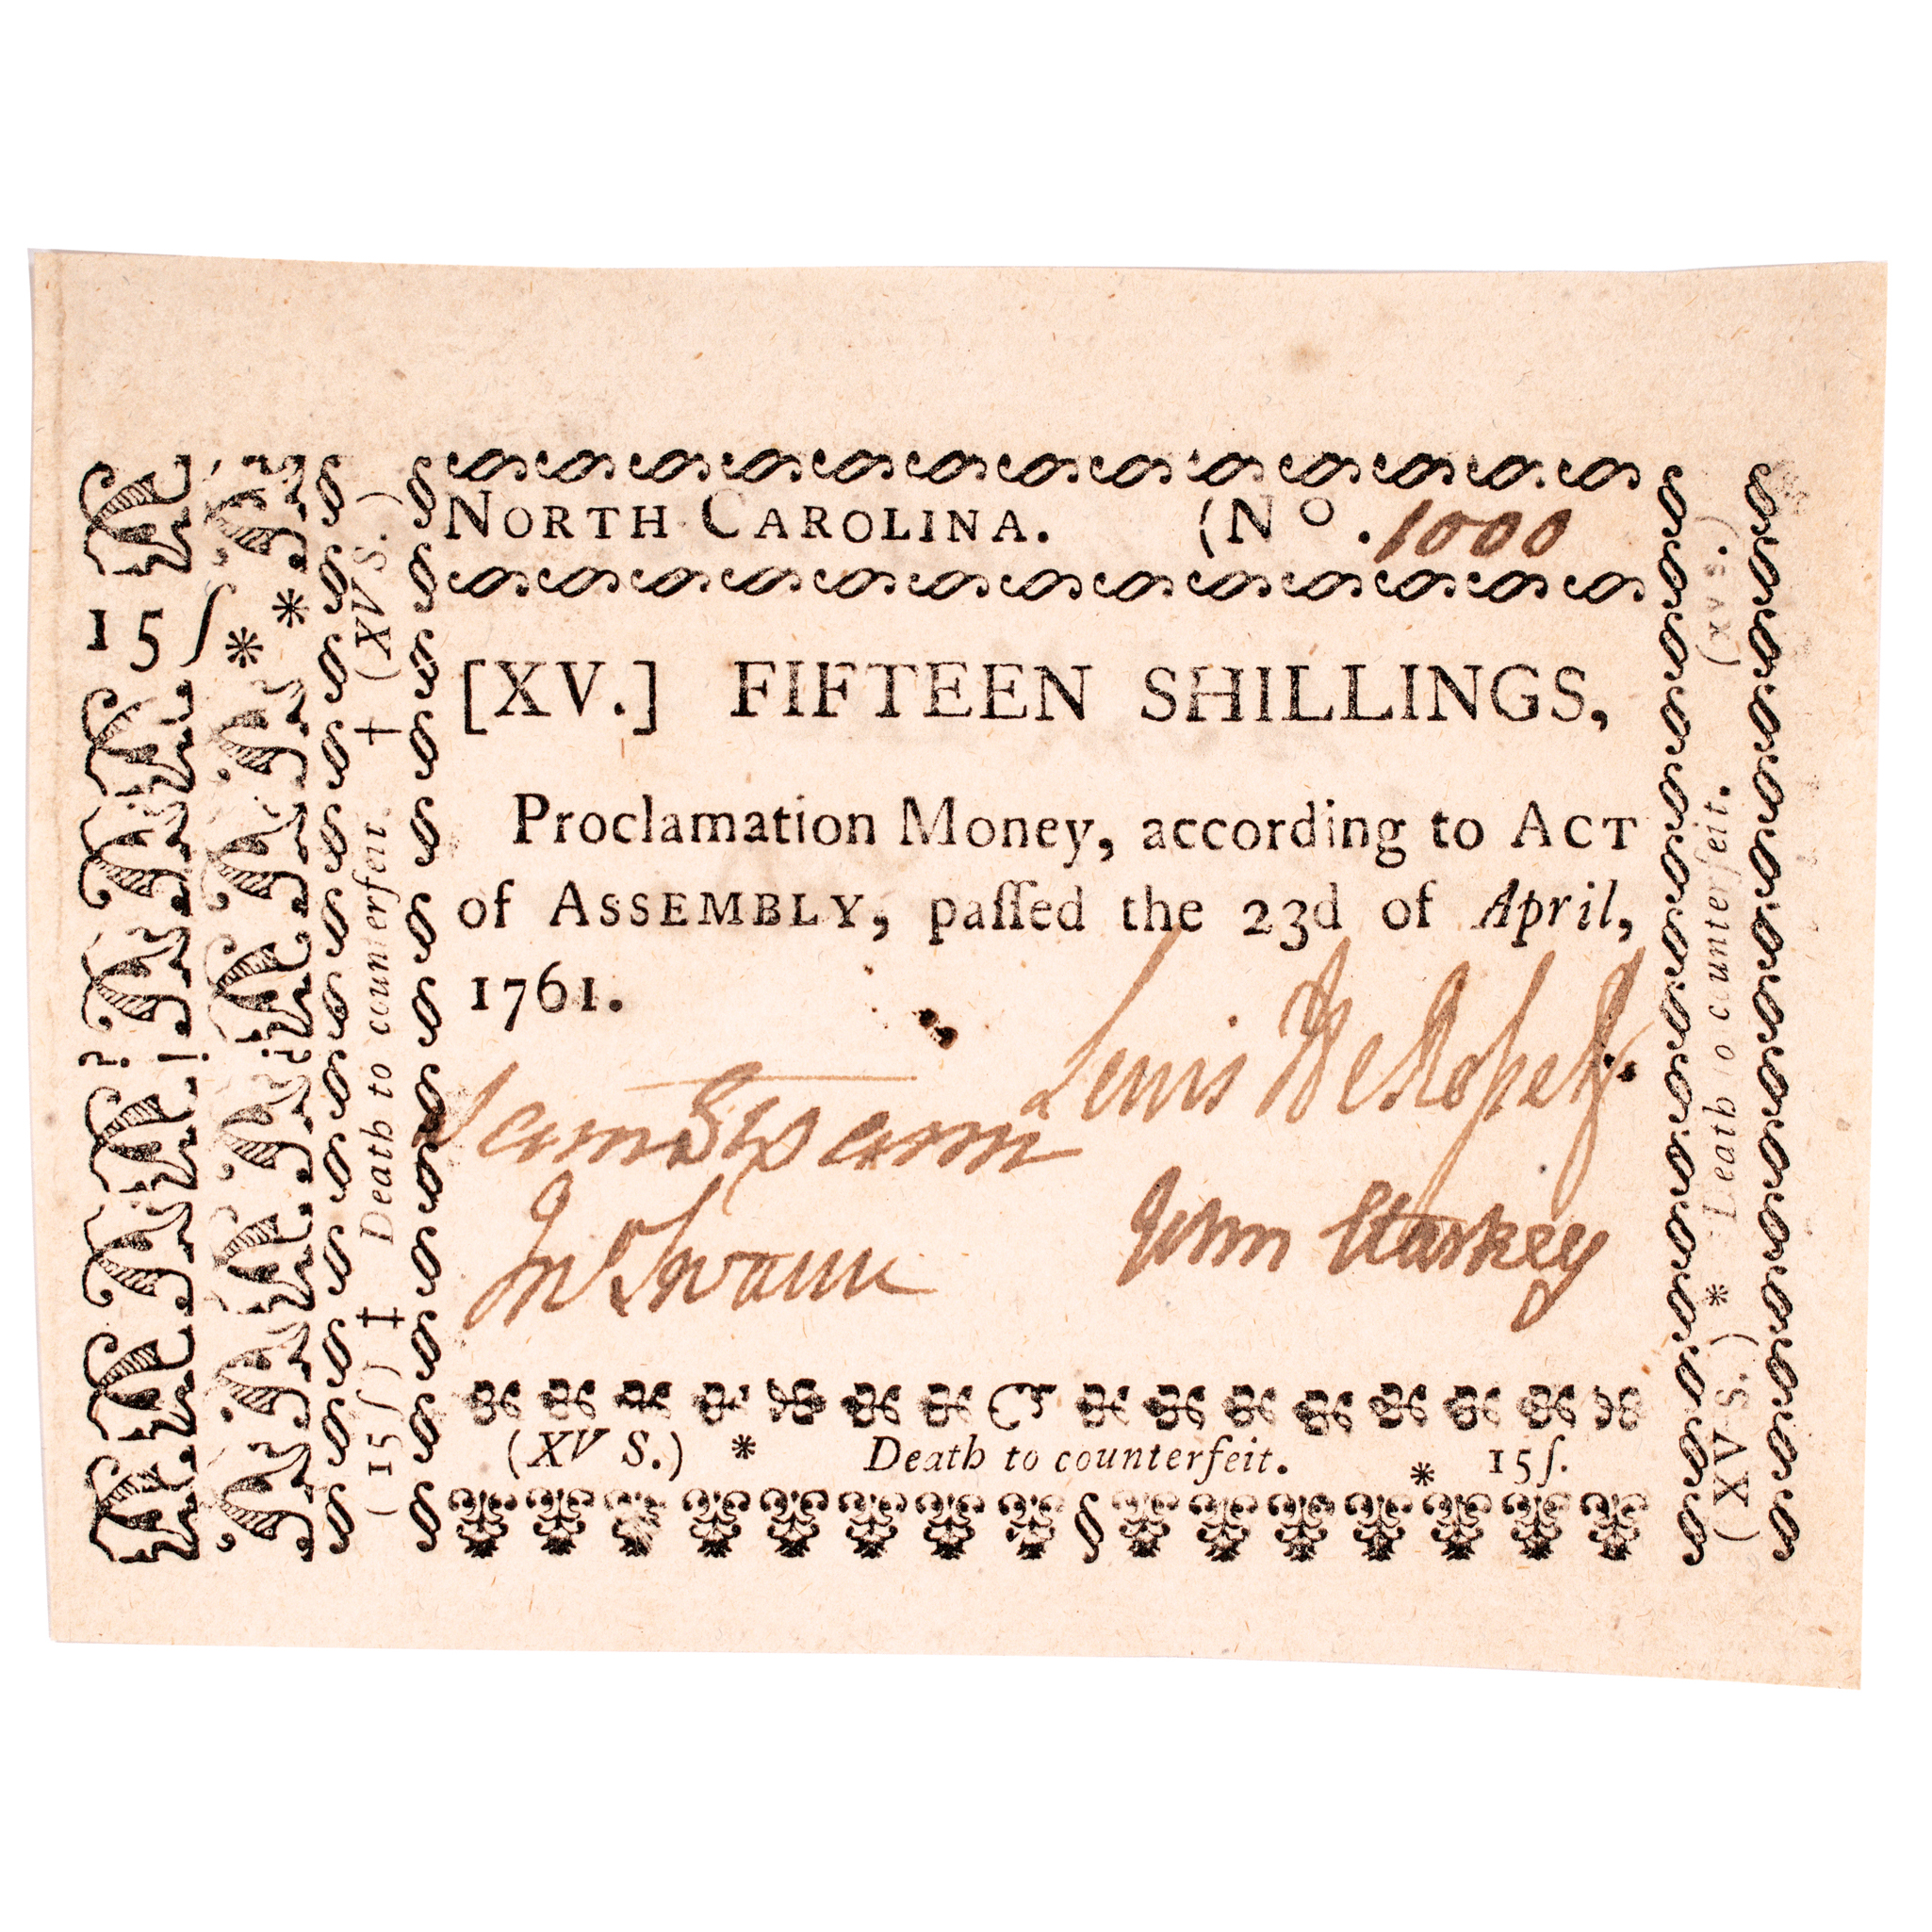 NORTH CAROLINA. (No. 1000
[XV.] FIFTEEN SHILLINGS,
Proclamation Money, according to ACT
of ASSEMBLY, paſſed the 23d of April,
1761.
Lewis DeRosset
Sam Swann
Jno Swann
John Starkey
(XV S.) * Death to counterfeit. * 15ſ.
15ſ * *
(15ſ) ‡ Death to counterfeit † (XV S.)
(XV S.) * Death to counterfeit. (XV S.)